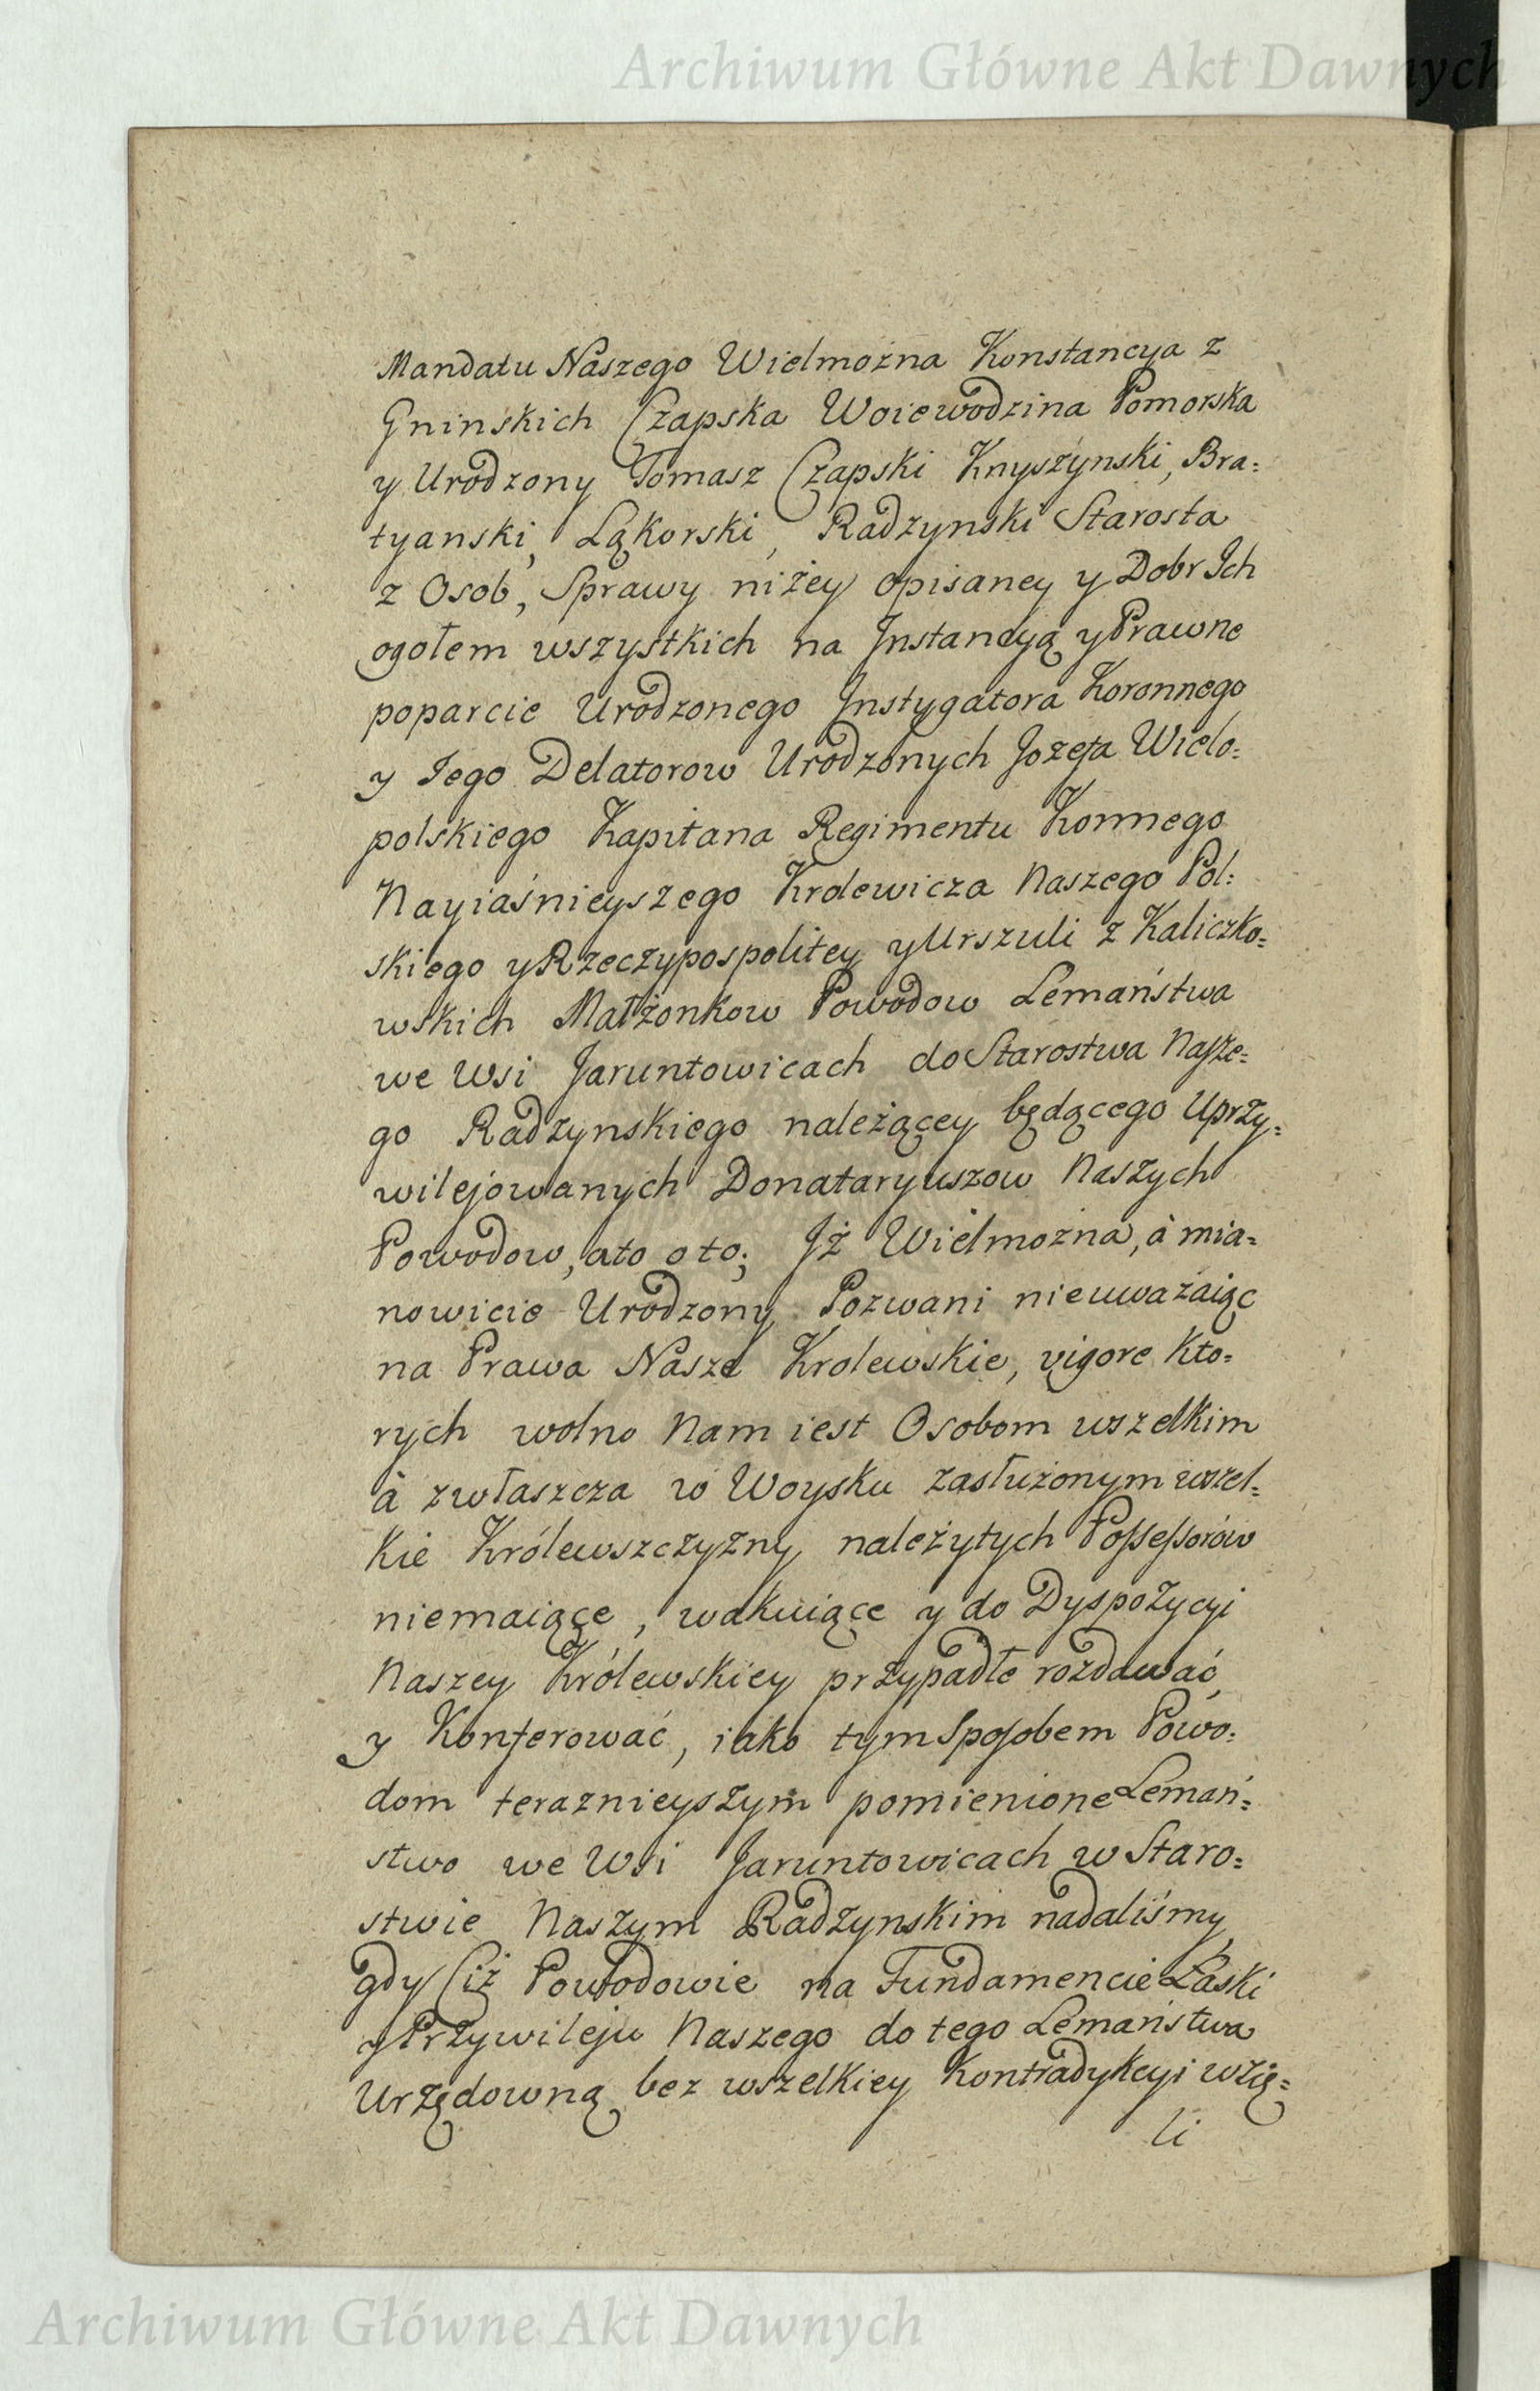 Archiwum Główne Akt Dawnych
Mandatu Naszego Wielmożna Konstancya z
Gninskich Czapska Woiewodzina Pomorska
y Urodzony Tomasz Czapski Knyszynski, Bra=
tyanski, Ląkorski, Radzynski Starosta
z Osob, Sprawy niżey opisaney y Dobr Ich
ogołem wszystkich na Instancyą y Prawne
poparcie Urodzonego Instygatora Koronnego
y Iego Delatorow Urodzonych Jozefa Wielo=
polskiego Kapitana Regimentu Konnego
Nayiaśnieyszego Krolewicza Naszego Pol=
skiego y Rzeczypospolitey y Urszuli z Kaliczko=
wskich Małżonkow Powodow Lemaństwa
we Wsi Jaruntowicach do Starostwa Nasze=
go Radzynskiego należącey będącego Uprzy=
wilejowanych Donataryuszow Naszych
Powodow, a to o to; Iż Wielmożna, à mia=
nowicie Urodzony Pozwani nieuważaiąc
na Prawa Nasze Krolewskie, vigore Kto=
rych wolno Nam iest Osobom wszelkim
à zwłaszcza w Woysku zasłużonym wszel=
kie Królewszczyzny należytych Possessorów
niemaiące, wakuiące y do Dyspozycyi
Naszey Królewskiey przypadłe rozdawać
y Konferować, iako tym Sposobem Powo=
dom teraznieyszym pomienione Lemań=
stwo we Wsi Jaruntowicach w Staro=
stwie Naszym Radzynskim nadaliśmy
gdy Ciż Powodowie na Fundamencie Łaski
y Przywileju Naszego do tego Lemaństwa
Urzędowną bez wszelkiey Kontradykcyi wzię=
li
Archiwum Główne Akt Dawnych